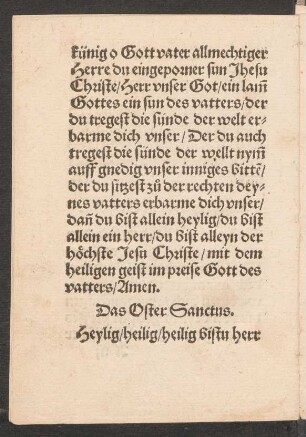 künig o Gott vater allmechtiger
Herre du eingeporner sun Jhesu
Christe/Herr vnser Got/ein lam̃
Gottes ein sun des vatters/der
du tregest die sünde der welt er-
barme dich vnser/Der du auch
tregest die sünde der wellt nym̃
auff gnedig vnser inniges bittẽ/
der du sitzest zů der rechten dey-
nes vatters erbarme dich vnser/
dañ du bist allein heylig/du bist
allein ein herr/du bist alleyn der
höchste Jesu Christe/mit dem
heiligen geist im preise Gott des
vatters/Amen.
Das Oster Sanctus.
Heylig/heilig/heilig bistu herr